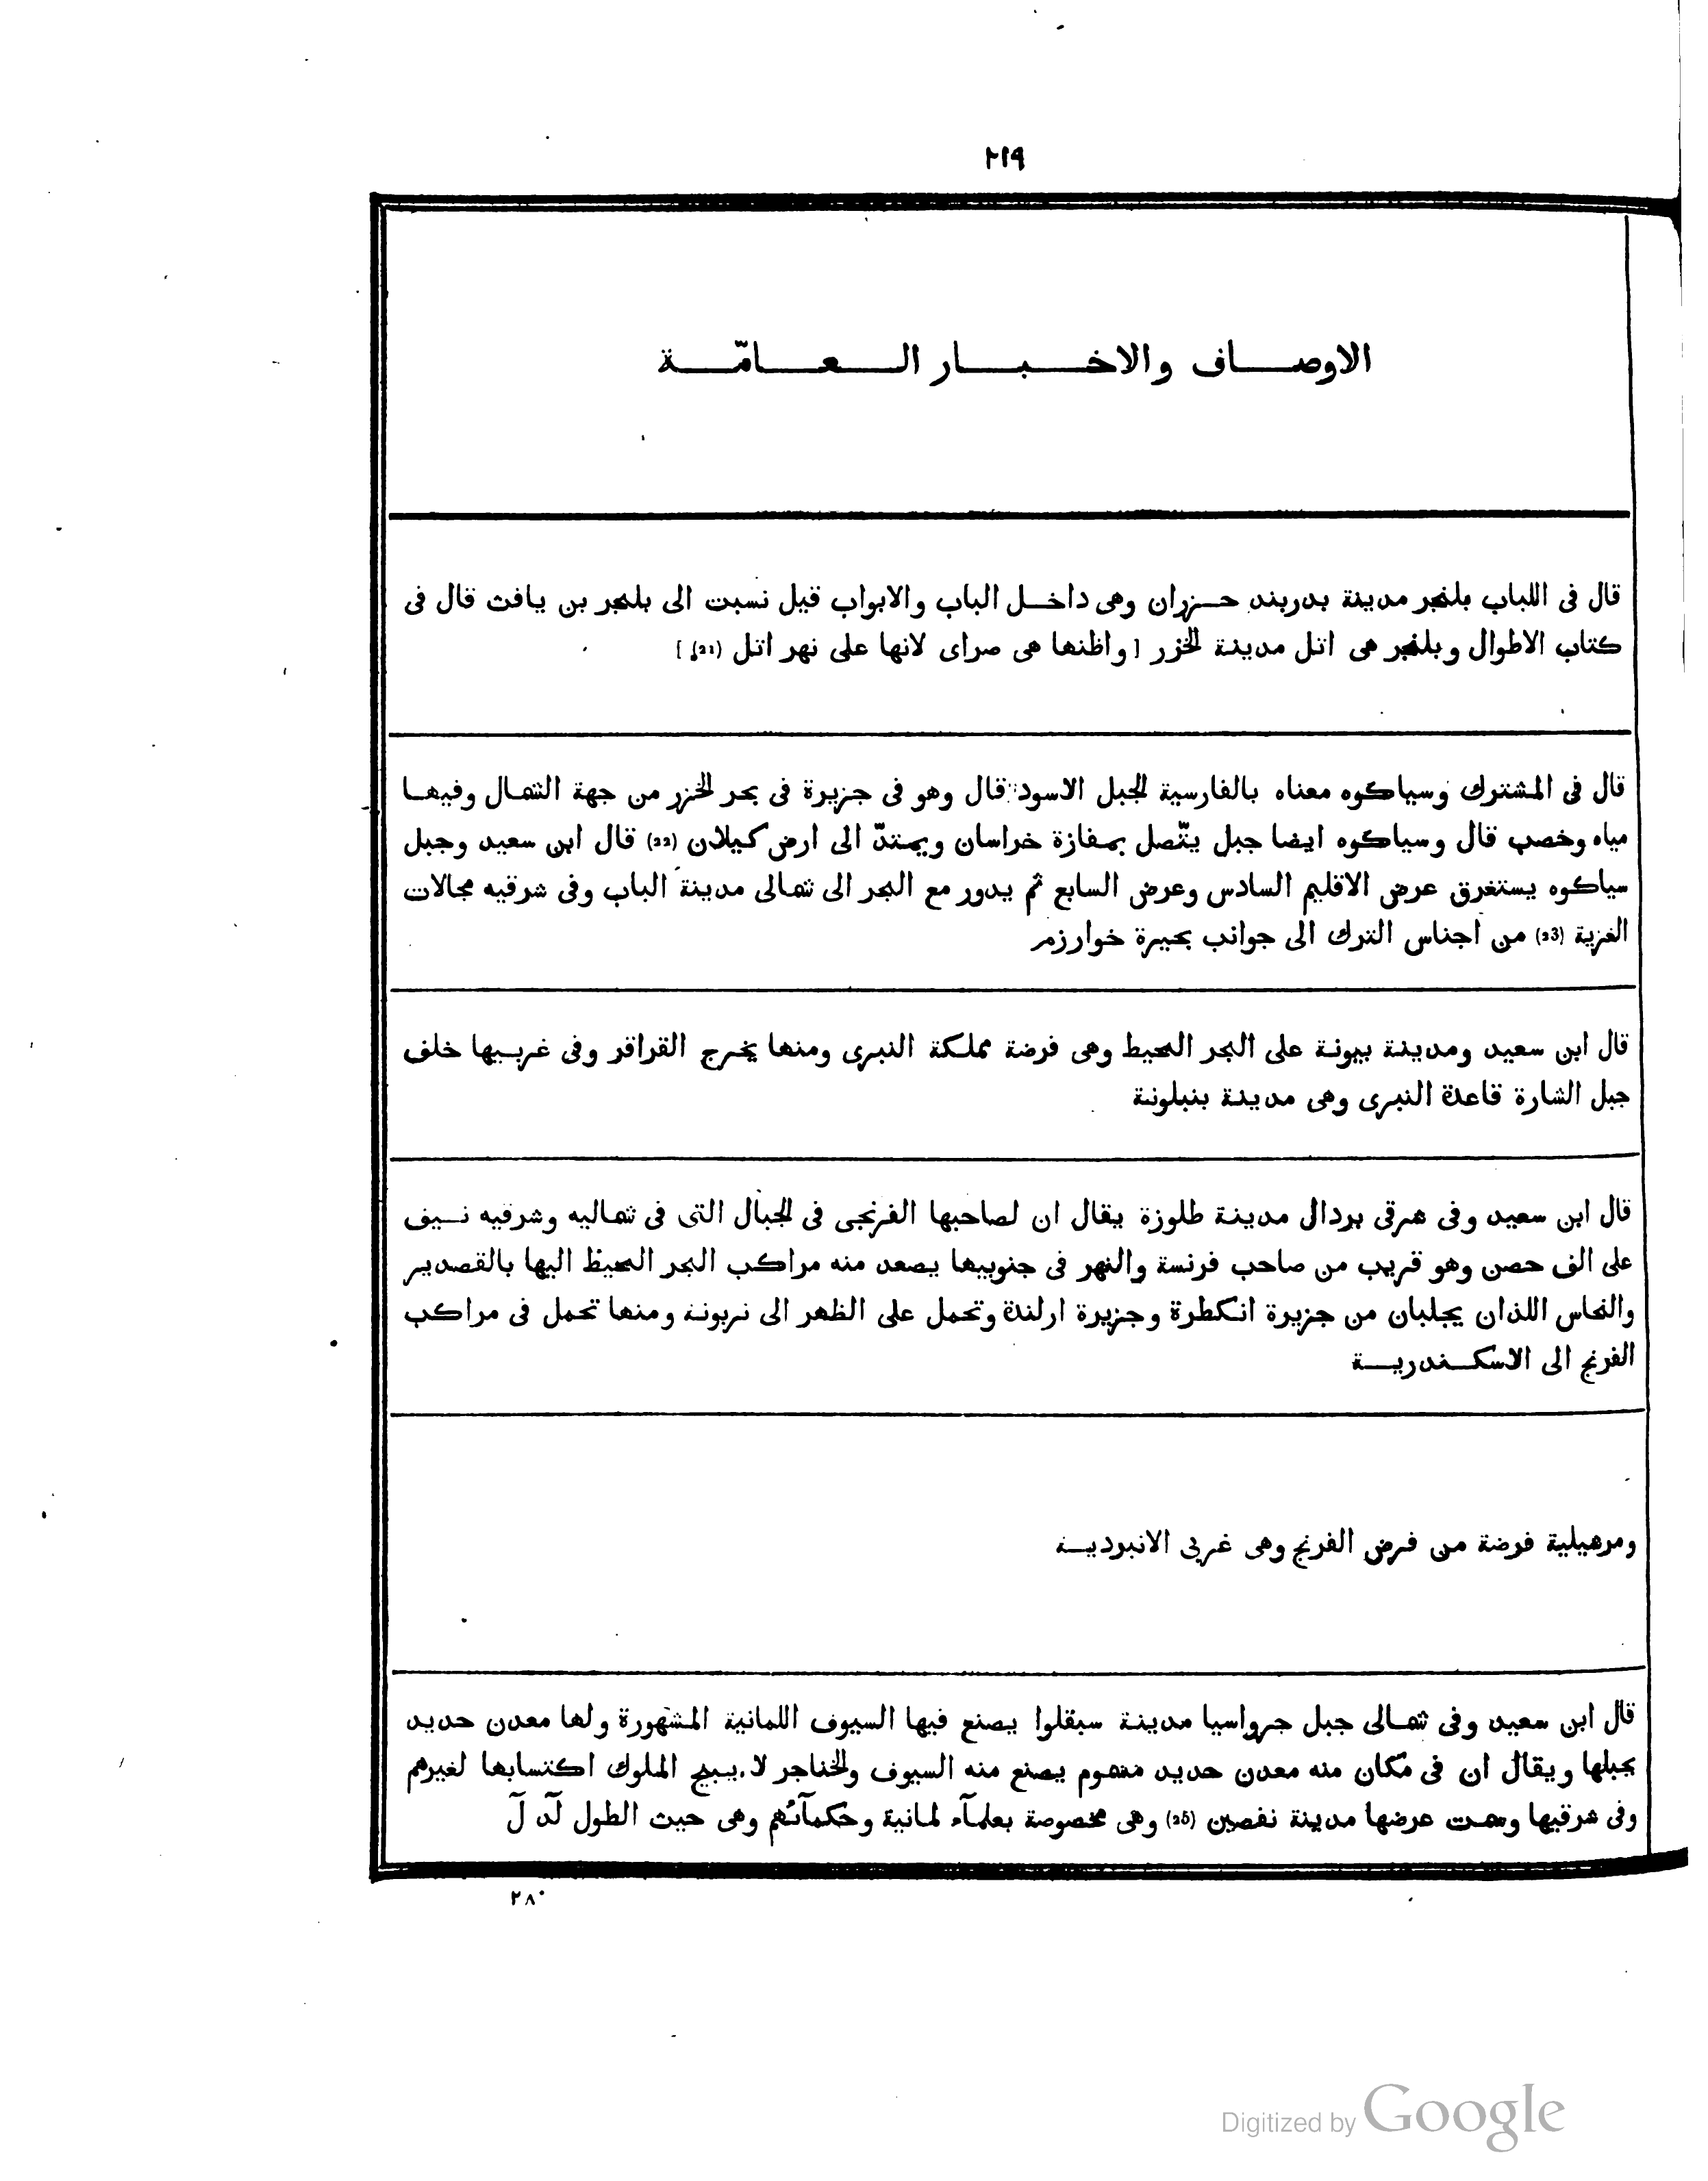 ٢١٩
الاوصاف والاخبار العامّة
قال فى اللباب بلنجر مدينة بدربند خزران وهى داخل الباب والابواب قيل نسبت الى بلنجر بن يافث قال فى
كتاب الاطوال وبلنجر هى اتل مدينة الخزر [واظنها هى صراى لانها على نهر اتل (21)]
قال فى المشترك وسياكوه معناه بالفارسية الجبل الاسود قال وهو فى جزيرة فى بحر الخزر من جهة الشمال وفيها
مياه وخصب قال وسياكوه ايضا جبل يتّصل بمفازة خراسان ويمتدّ الى ارض كيلان (22) قال ابن سعيد وجبل
سياكوه يستغرق عرض الاقليم السادس وعرض السابع ثم يدور مع البحر الى شمالى مدينة الباب وفى شرقيه مجالات
الغزية (23) من اجناس الترك الى جوانب بحيرة خوارزم
قال ابن سعيد ومدينة بيونة على البحر المحيط وهى فرضة مملكة النبرى ومنها يخرج القراقر وفى غربيها خلف
جبل الشارة قاعدة النبرى وهى مدينة بنبلونة
قال ابن سعيد وفى شرقى بردال مدينة طلوزة يقال ان لصاحبها الفرنجى فى الجبال التى فى شماليه وشرقيه نيف
على الف حصن وهو قريب من صاحب فرنسة والنهر فى جنوبيها يصعد منه مراكب البحر المحيط اليها بالقصدير
والنحاس اللذان يجلبان من جزيرة انكطرة وجزيرة ارلندة وتحمل على الظهر الى نربونة ومنها تحمل فى مراكب
الفرنج الى الاسكندرية
ومرشيلية فرضة من فرض الفرنج وهى غربى الانبردية
قال ابن سعيد وفى شمالى جبل جرواسيا مدينة سبقلوا يصنع فيها السيوف اللمانية المشهورة ولها معدن حديد
بجبلها ويقال ان فى مكان منه معدن حديد مسموم يصنع منه السيوف والخناجر لا يبيح الملوك اكتسابها لغيرهم
وفى شرقيها وسمت عرضها مدينة نفصين (25) وهى مخصوصة بعلمآء لمانية وحكمآئهم وهى حيث الطول لد ل
٢٨٠
Digitized by Google